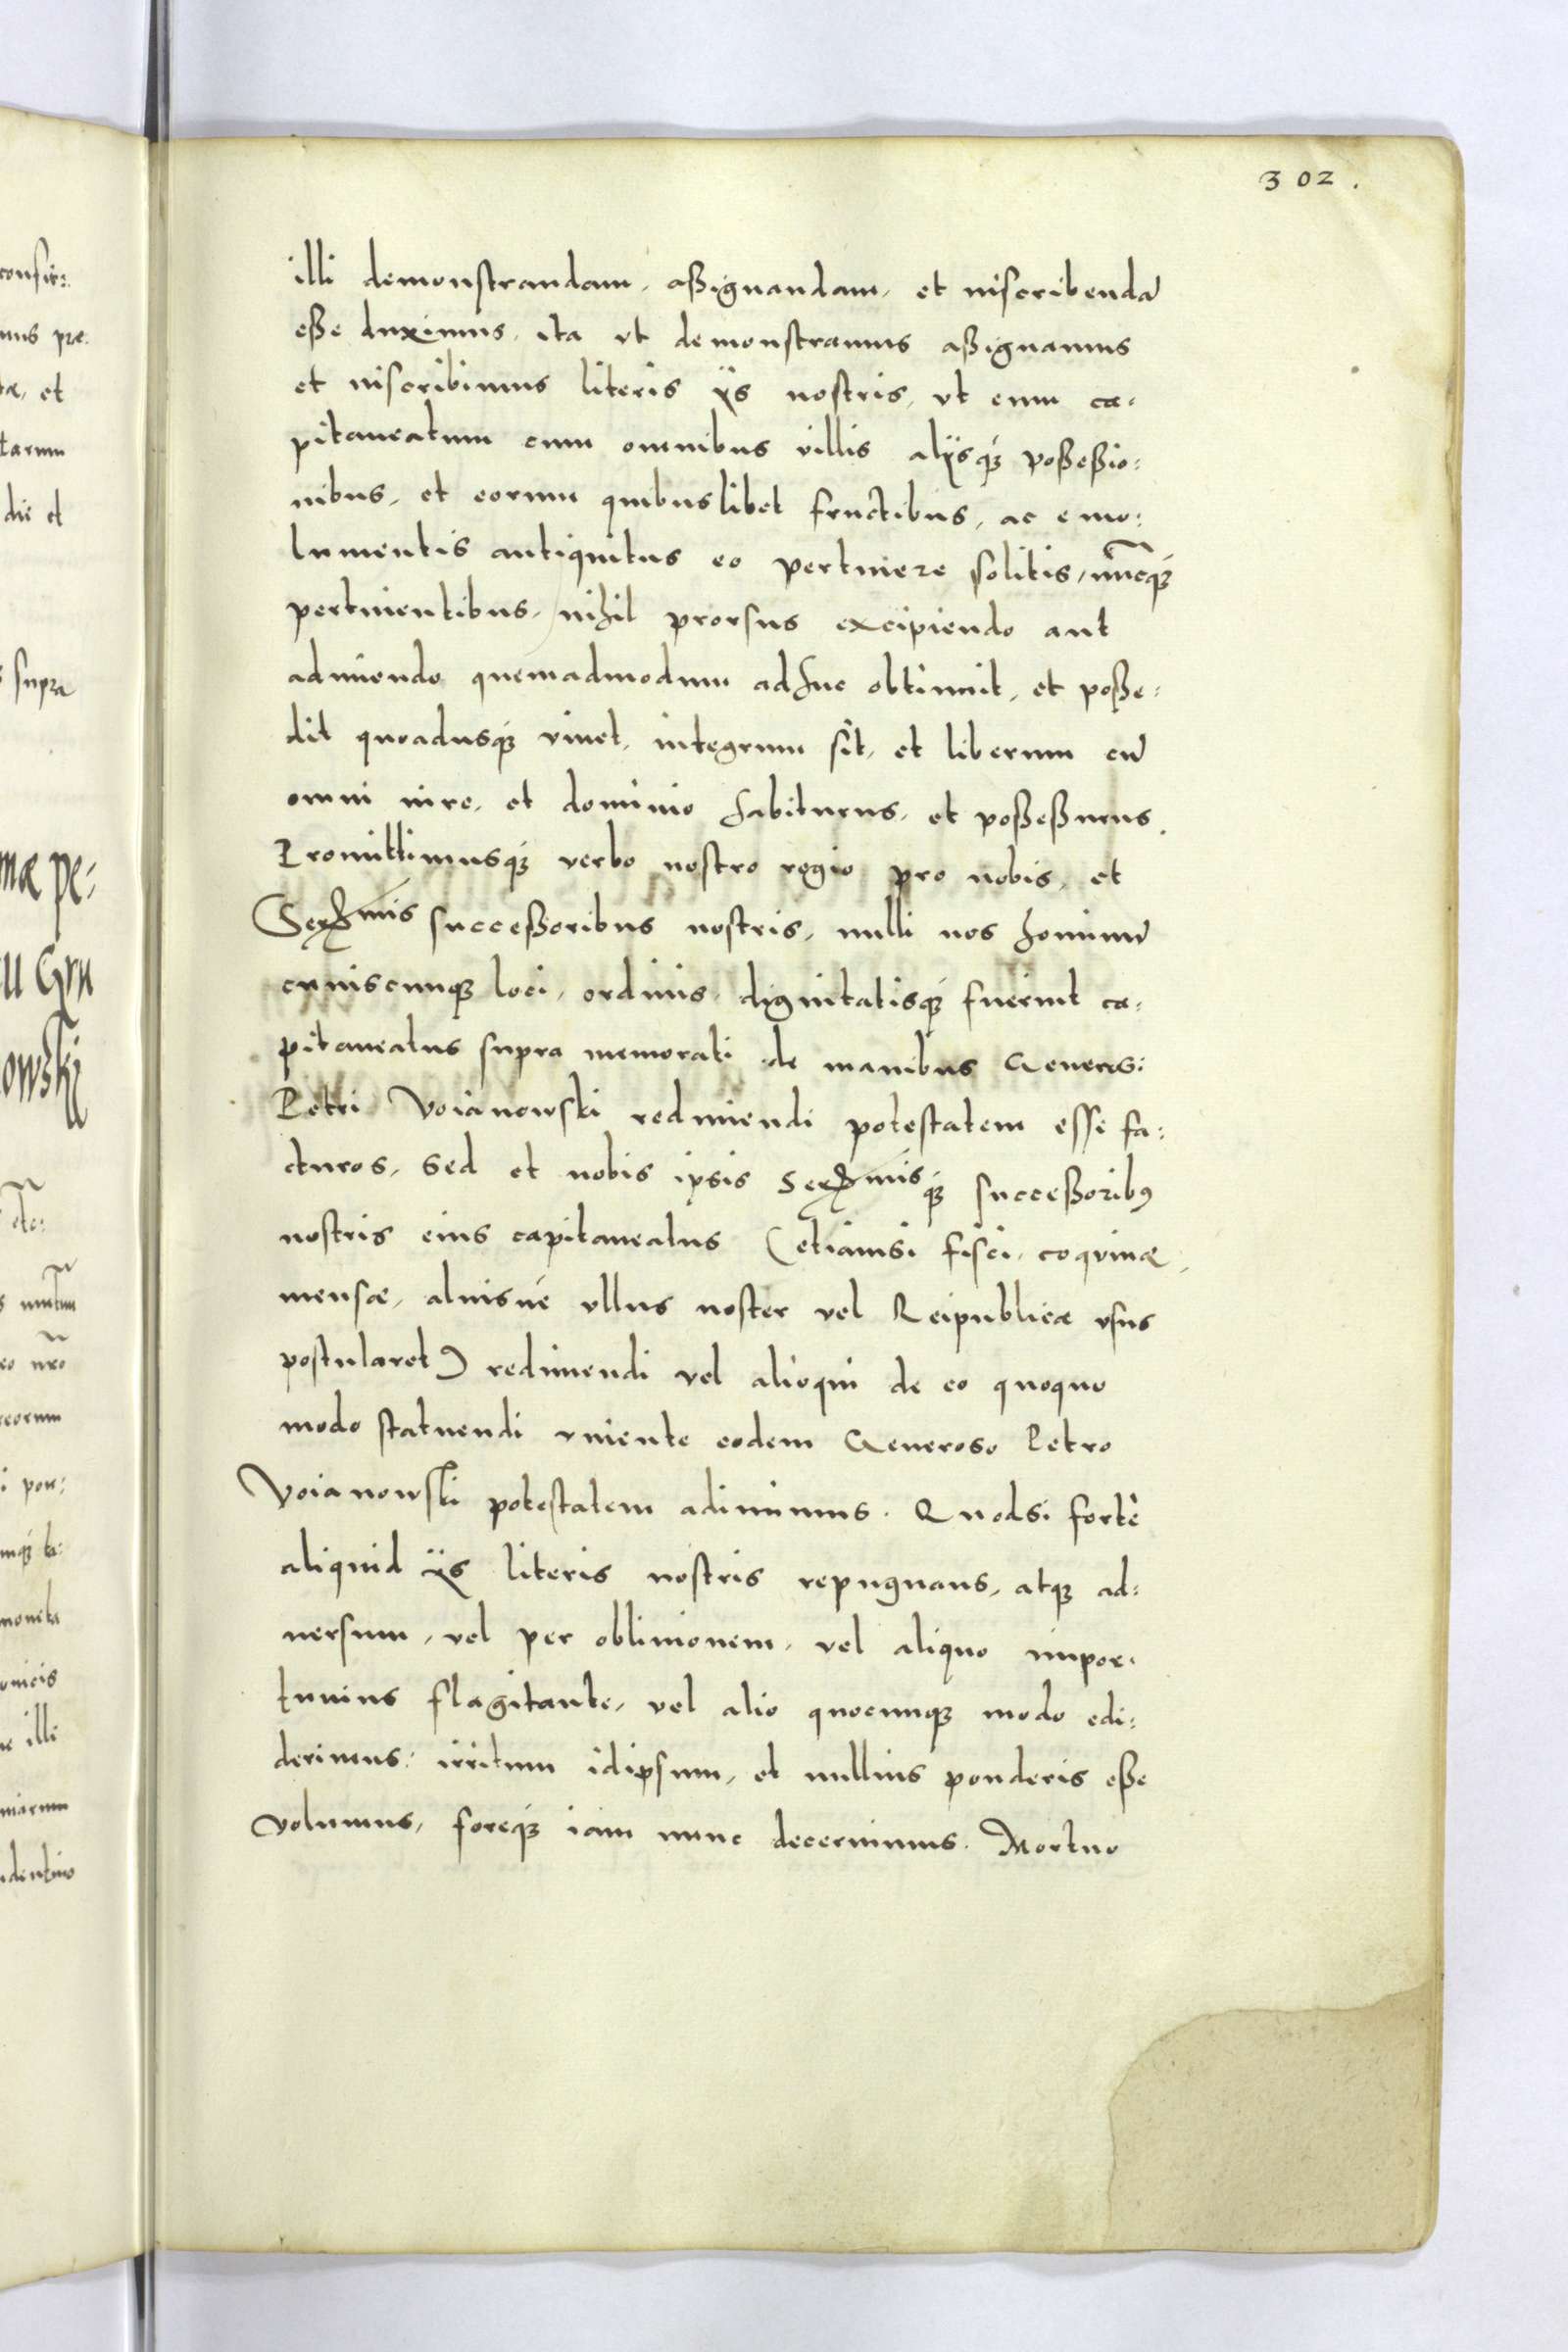 302.
illi demonstrandam, aßignandam, et inscribendã
eße duximus, ita vt demonstramus aßignamus
et inscribimus literis ijs nostris, vt eum ca-
pitaneatum cum omnibus villis alijsq́ꝫ poßeßio:
nibus, et eorum quibuslibet fructibus, ac emo:
lumentis antiquitus eo pertinere solitis, nũcq́ꝫ
pertinentibus, nihil prorsus excipiendo aut
adimendo quemadmodum adhuc obtinuit, et poße:
dit quoadusq́ꝫ viuet, integrum sit, et liberum cũ
omni iure, et dominio habiturus, et poßeßurus.
Promittimusq́ꝫ verbo nostro regio pro nobis, et
Serẽmis succeßoribus nostris, nulli nos hominũ
cuiuscunqꝫ loci, ordinis, dignitatisq́ꝫ fuerint ca-
pitaneatus supra memorati de manibus Generosi
Petri Voianowski redimendi potestatem esse fa:
cturos, sed et nobis ipsis Serẽmisq́ꝫ succeßoribꝰ
nostris eius capitaneatus (etiamsi fisci, coquinæ,
mensæ, aliusué vllus noster vel Reipublicæ vsus
postularet) redimendi vel alioqui de eo quoquo
modo statuendi viuente eodem Generoso Petro
Voianowski potestatem adimimus. Quodsi fortè
aliquid ijs literis nostris repugnans, atqꝫ ad:
uersum, vel per obliuionem, vel aliquo impor-
tunius flagitante, vel alio quocunqꝫ modo edi:
derimus: irritum idipsum, et nullius ponderis eße
volumus, foreq́ꝫ iam nunc decernimus. Mortuo